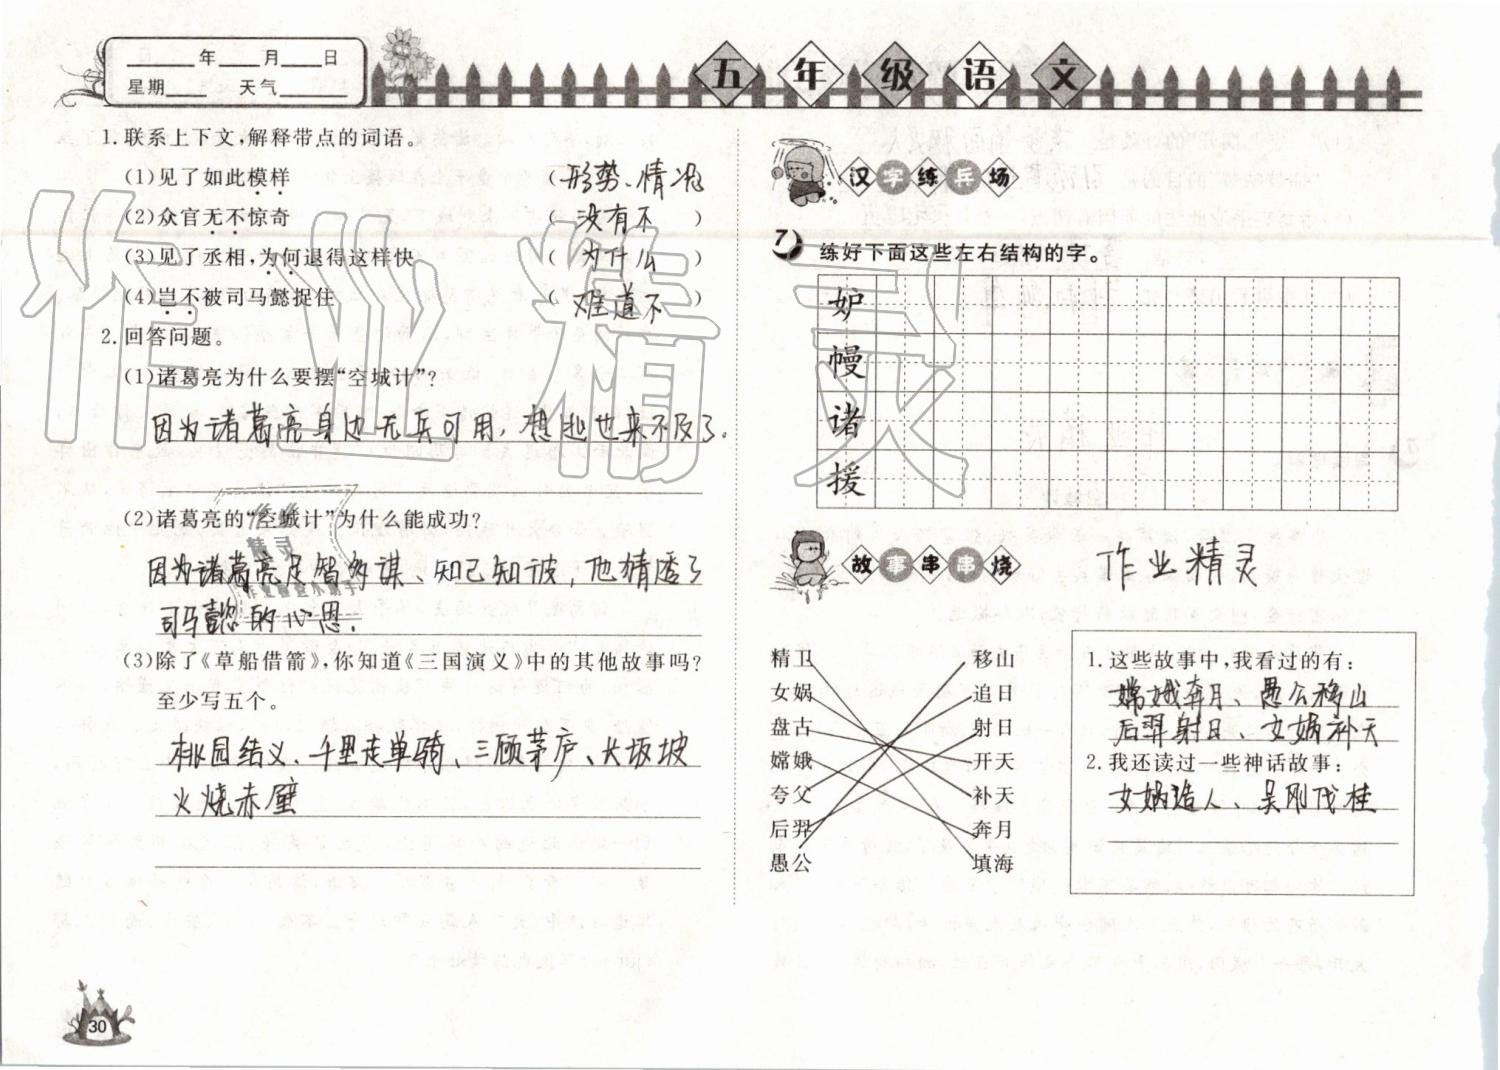 ____年____月____日
星期____ 天气____
五年级语文
1.联系上下文,解释带点的词语。
(1)见了如此模样 (形势、情况)
(2)众官无不惊奇 (没有不)
(3)见了丞相,为何退得这样快 (为什么)
(4)岂不被司马懿捉住 (难道不)
2.回答问题。
(1)诸葛亮为什么要摆“空城计”?
因为诸葛亮身边无兵可用,想逃也来不及了。
(2)诸葛亮的“空城计”为什么能成功?
因为诸葛亮足智多谋、知己知彼,他猜透了
司马懿的心思.
(3)除了《草船借箭》,你知道《三国演义》中的其他故事吗?
至少写五个。
桃园结义、千里走单骑、三顾茅庐、长坂坡
火烧赤壁
30
汉字练兵场
7 练好下面这些左右结构的字。
妒
幔
诸
援
故事串串烧
作业精灵
精卫 移山
女娲 追日
盘古 射日
嫦娥 开天
夸父 补天
后羿 奔月
愚公 填海
1.这些故事中,我看过的有:
嫦娥奔月、愚公移山
后羿射日、女娲补天
2.我还读过一些神话故事:
女娲造人、吴刚伐桂
作业精灵
作业精灵
作业检查小助手